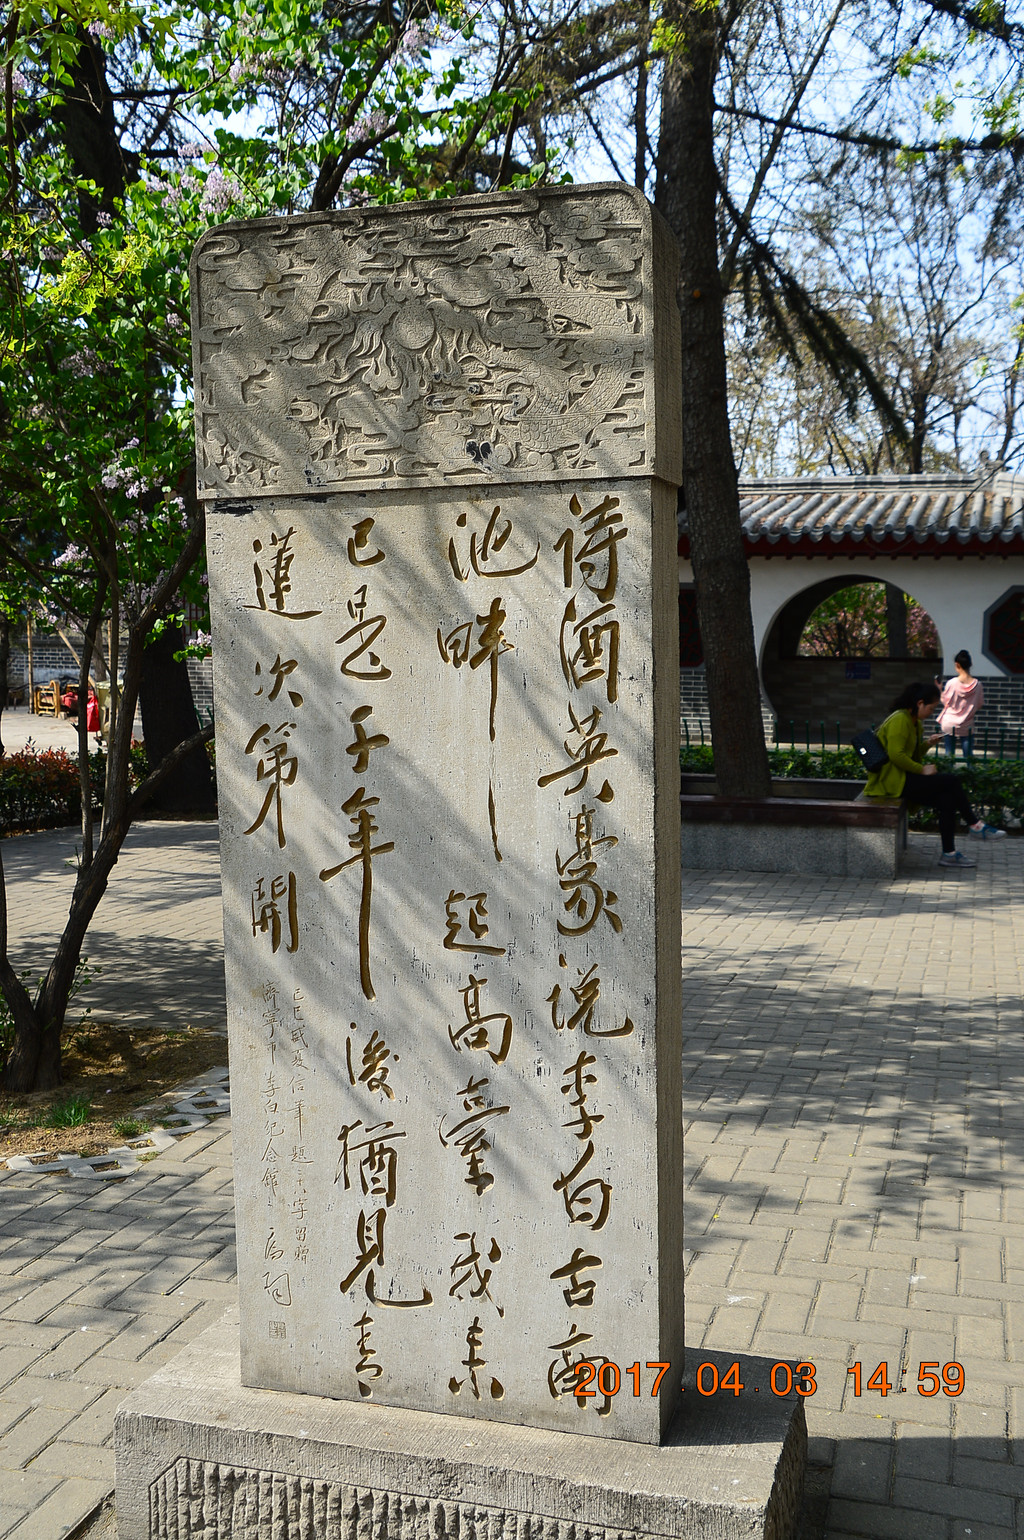 诗酒英豪说李白古南
池畔起高臺我来
已是千年後猶見青
蓮次第開
己巳盛夏信筆題
字留贈
濟寧市李白纪念館
2017.04.03 14:59